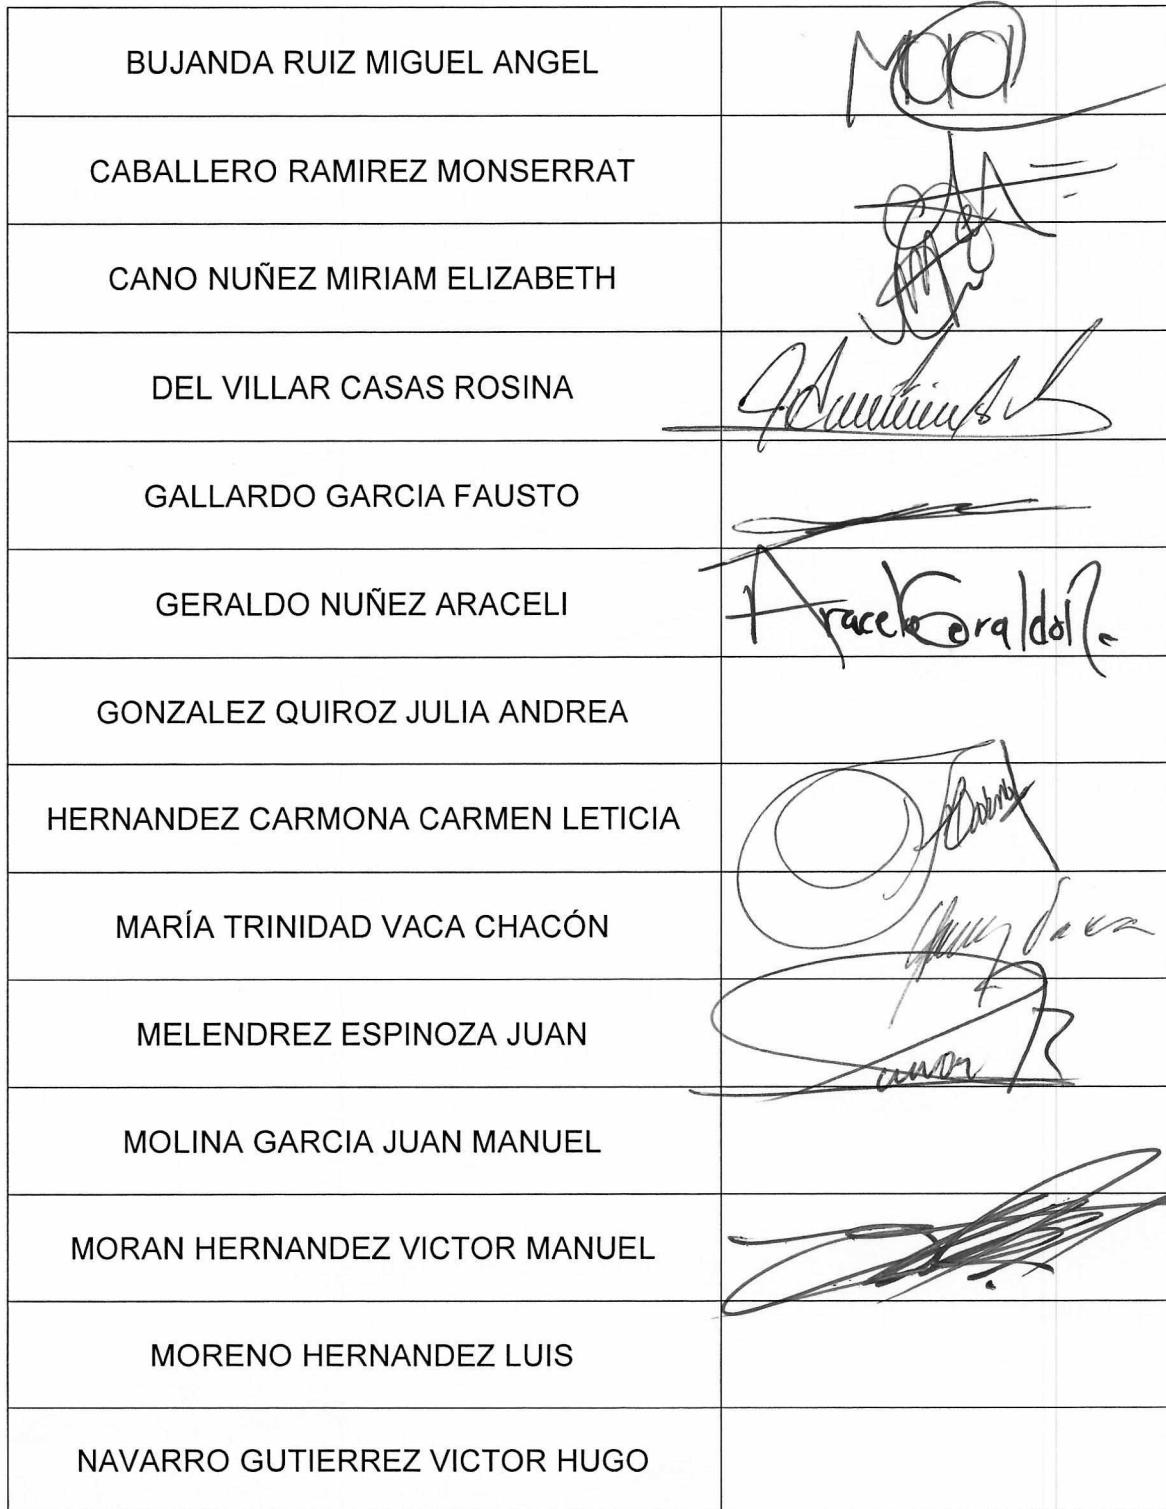 BUJANDA RUIZ MIGUEL ANGEL
CABALLERO RAMIREZ MONSERRAT
CANO NUÑEZ MIRIAM ELIZABETH
DEL VILLAR CASAS ROSINA
GALLARDO GARCIA FAUSTO
GERALDO NUÑEZ ARACELI
GONZALEZ QUIROZ JULIA ANDREA
HERNANDEZ CARMONA CARMEN LETICIA
MARÍA TRINIDAD VACA CHACÓN
MELENDREZ ESPINOZA JUAN
MOLINA GARCIA JUAN MANUEL
MORAN HERNANDEZ VICTOR MANUEL
MORENO HERNANDEZ LUIS
NAVARRO GUTIERREZ VICTOR HUGO